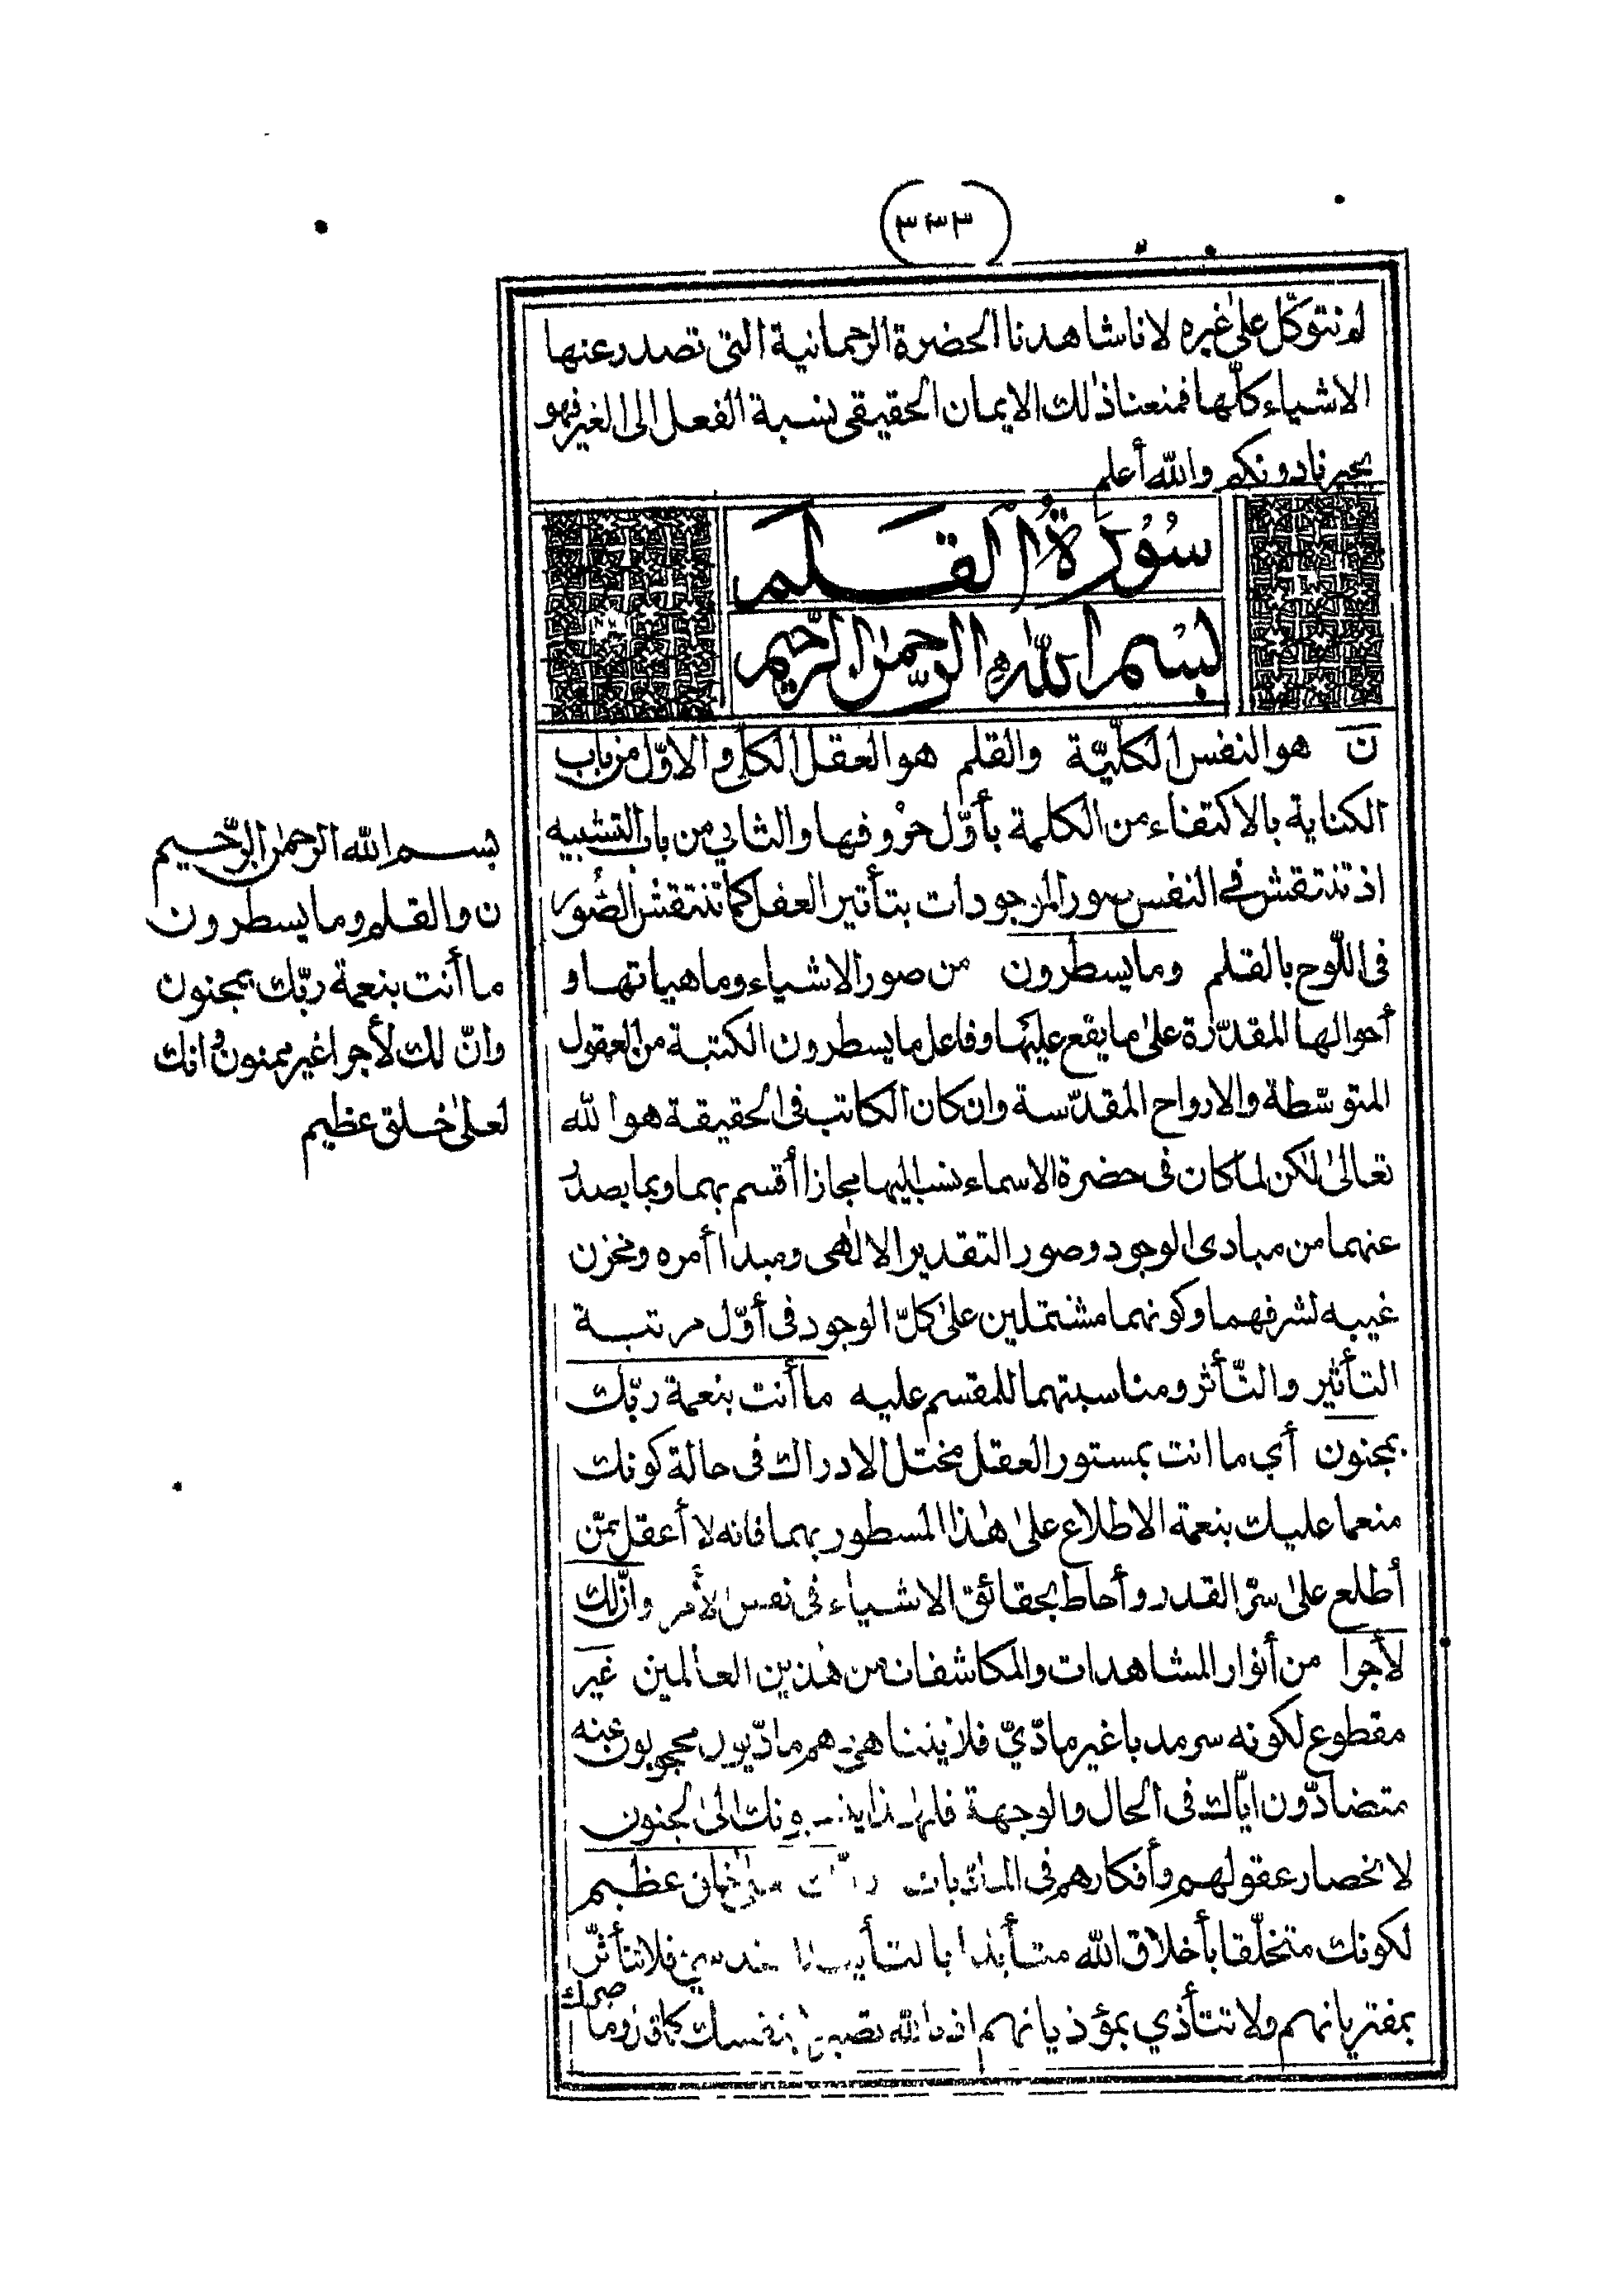 (٣٣٣)
لم نتوكّل على غيره لانا شاهدنا الحضرة الرحمانية التي تصدر عنها
الاشياء كلّها فمنعنا ذلك الايمان الحقيقى نسبة الفعل الى الغير فهو
يجيرنا دونكم والله أعلم
سُوُرَةُ الْقَلَمَ
بسم الله الرحمن الرحيم
ن هو النفس الكليّة والقلم هو العقل الكلى والاوّل من باب
الكناية بالاكتفاء من الكلمة بأوّل حروفها والثاني من باب التشبيه
اذ تنتقش في النفس صور الموجودات بتأثير العقل كما تنتقش الصُور
فى اللّوح بالقلم وما يسطرون من صور الاشياء وماهياتها و
أحوالها المقدّرة على ما يقع عليها وفاعل ما يسطرون الكتبة من العقول
المتوسّطة والارواح المقدّسة وان كان الكاتب فى الحقيقة هو الله
تعالى لكن لما كان فى حضرة الاسماء نسب اليها مجازا أقسم بهما وبما يصدر
عنهما من مبادى الوجود وصور التقدير الالهى ومبدا أمره ومخزن
غيبه لشرفهما وكونهما مشتملين على كلّ الوجود فى أوّل مرتبة
التأثير والتّأثر ومناسبتهما للمقسم عليه ما أنت بنعمة ربّك
بمجنون أي ما انت بمستور العقل مختل الادراك فى حالة كونك
منعما عليك بنعمة الاطلاع على هذا المسطور بهما فانه لا أعقل ممّن
أطلع على سرّ القدر وأحاط بحقائق الاشياء فى نفس الأمر وانّ لك
لأجرا من أنوار المشاهدات والمكاشفات من هذين العالمين غير
مقطوع لكونه سرمديا غير مادّيّ فلا يتناهى وهم مادّيون محجوبون عنه
متضادّون ايّاك فى الحال والوجهة فلهذا ينسبونك الى الجنون
لانحصار عقولهم وأفكارهم فى الماديات وانّك لعلى خلق عظيم
لكونك متخلّقا بأخلاق الله متأيّدا بالتأييد القدسيّ فلا تتأثّر
بمفترياتهم ولا تتأذي بمؤذياتهم اذ بالله تصبر لا بنفسك كما قال وما صبرك
بسم الله الرحمن الرّحيم
ن والقلم وما يسطرون
ما أنت بنعمة ربّك بمجنون
وانّ لك لأجرا غير ممنون وانك
لعلى خلق عظيم